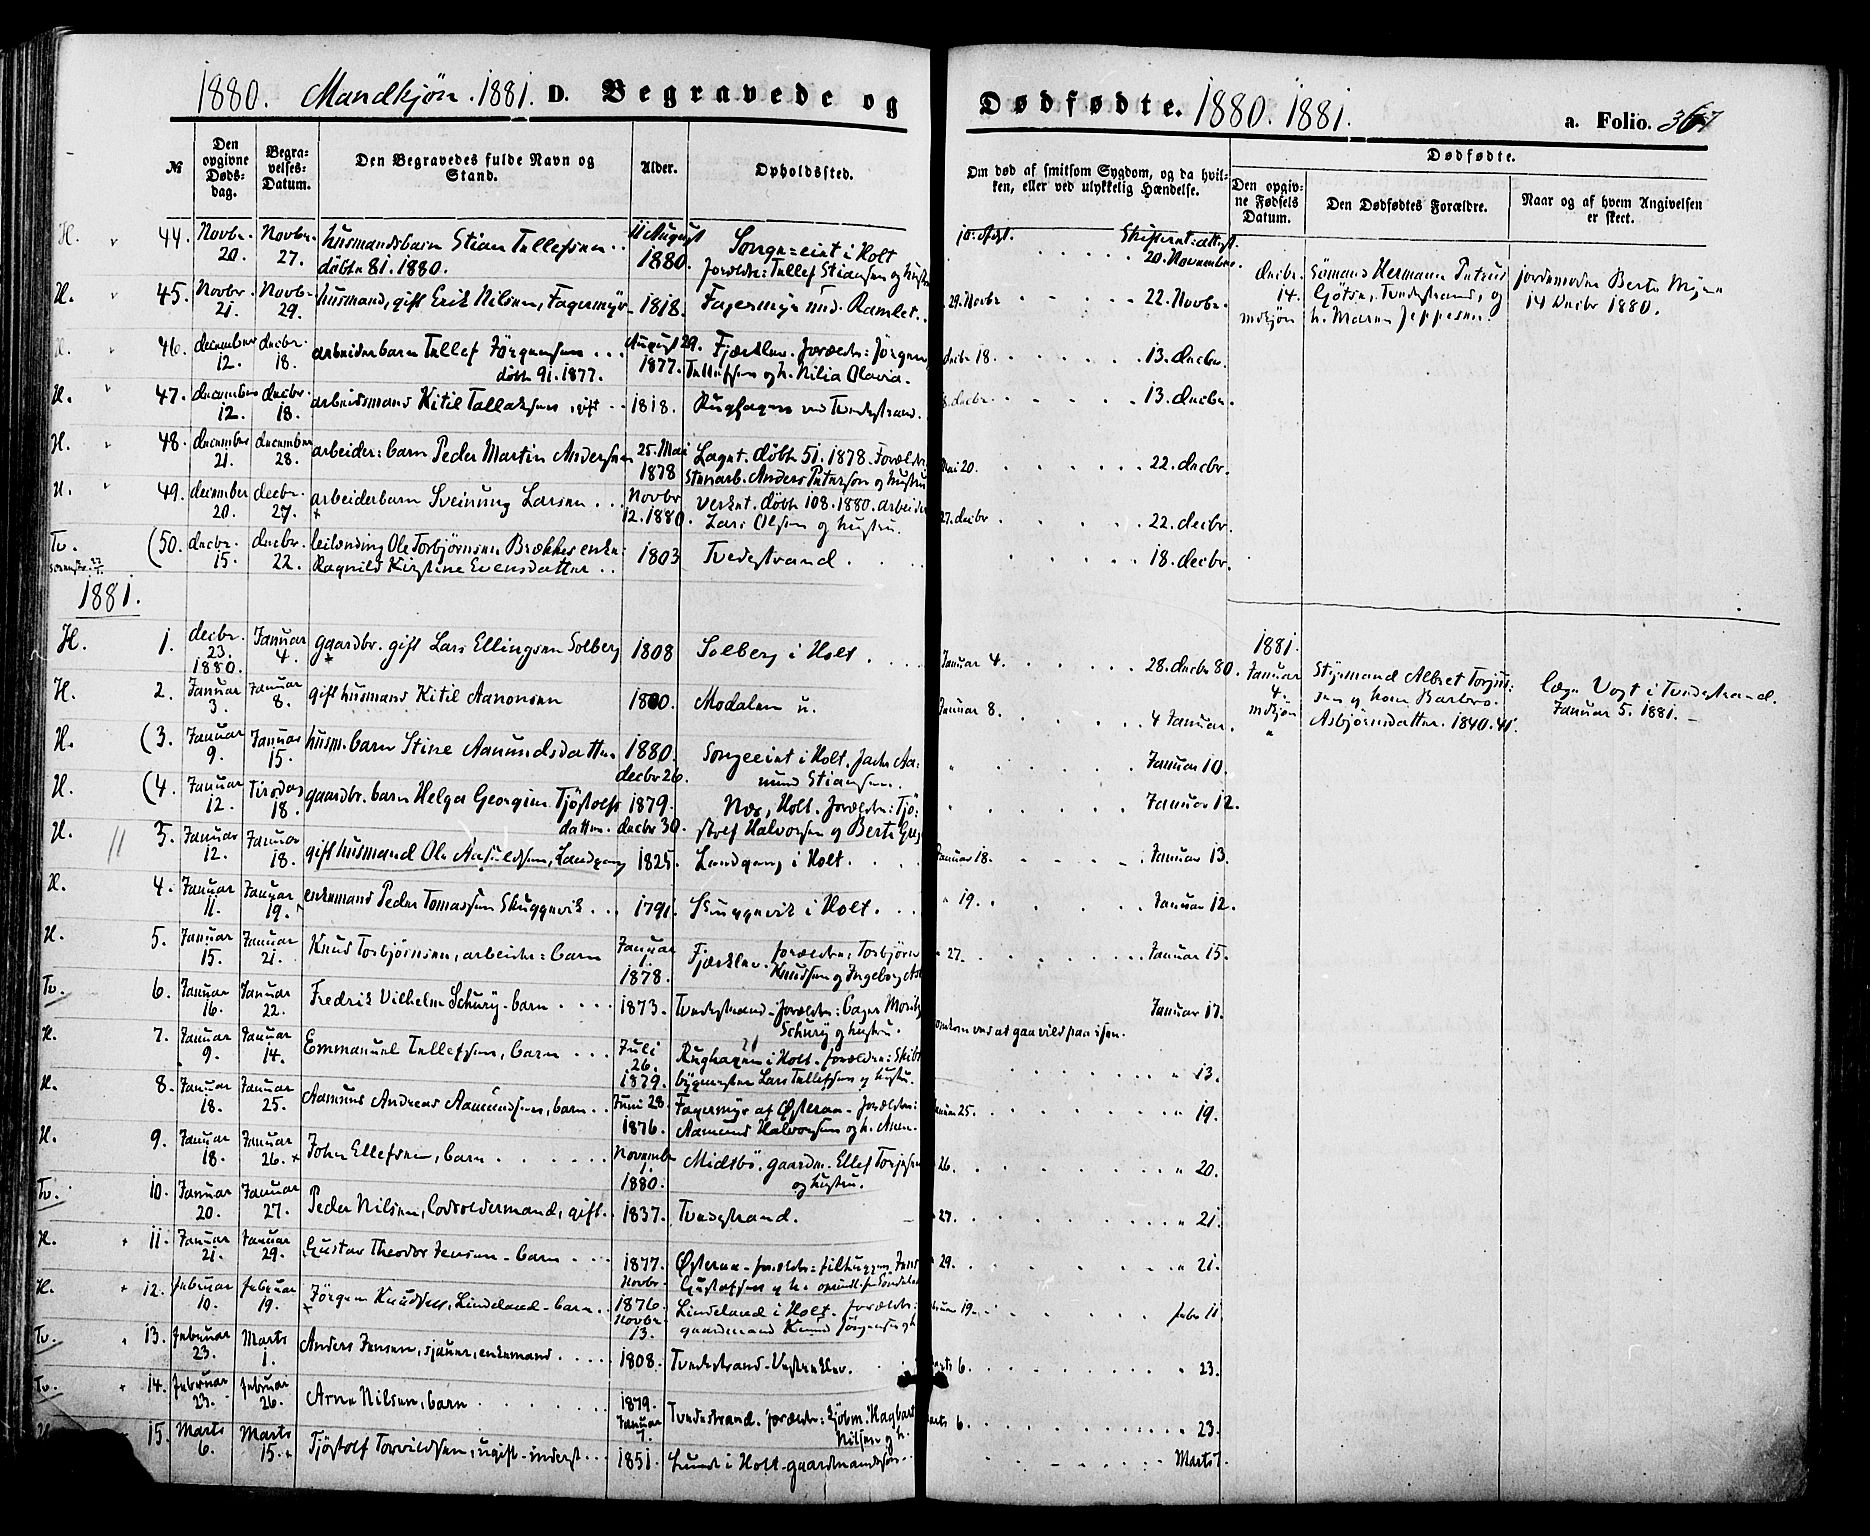 1880. Mandkjøn. 1881. D. Begravede og Dødfødte. 1880. 1881. a. Folio. 367
№ Den opgivne Dødsdag. Begravelses-Datum. Den Begravedes fulde Navn og Stand. Alder. Opholdssted. Om død af smitsom Sygdom, og da hvilken, eller ved ulykkelig Hændelse. Dødfødte. Den opgivne Fødsels Datum. Den Dødfødtes Forældre. Naar og af hvem Angivelsen er skeet.
H. 44. Novbr. 20. Novbr. 27. husmandsbarn Stian Tellefsen 11 August 1880. Songe=eint i Holt 20. Novembr.
døbt 81. 1880. Forældre: Tellef Stiansen og hustru
H. 45. Novbr 21. Novbr. 29. husmand, gift Erik Nilsen, Fagermyr 1818. Fagermyr 29. Novbr 22. Novbr.
decbr. 14. mdkjøn Sömand Hermann Gjötsen, Tvedestrand, og h. Maren Jeppesen. jordemoder Berte 14 Decbr 1880.
46. december 12. decbr. 18. arbeiderbarn Tellef Jörgensen August 29. 1877. Fjærkleu. Forældre: Jörgen decbr 18. 13. decbr.
døbt 91. 1877. Tellefsen og h. Nilia Olavia.
H. 47. december 12. decbr. 18. arbeidsmand Kitil Tallaksen, gift 1818. Rughagen ved Tvedestrand. 13. decbr.
H. 48. december 21. december 28. arbeider: barn Peder Martin Andersen 25. Mai 1878 døbt 51. 1878. Forældre 22. decbr.
Stenarb. Anders Petersen og hustru
H. 49. december 20. decbr. 27. arbeiderbarn Sveinung Larsen Novbr 12. 1880. døbt 108. 1880. arbeider 27. decbr 22. decbr.
Lars Olsen og hustru.
Tv. 50. decbr. 15. decbr. 22. leilænding Ole Torbjørnsen Brækkes enke: 1803 Tvedestrand. 18. decbr.
Ragnild Kirstine Evensdatter
1881.
H. 1. decbr. 23. 1880. Januar 4. gaardbr. gift Lars Ellingsen Solberg 1808 Solberg i Holt Januar 4. 28. decbr 80.
1881. Januar 4. mdkjøn Styrmand Albret og kone Barbro Asbjørnsdatter. 1840. 41. læge Vogt i Tvedestrand. Januar 5. 1881.
H. 2. Januar 3. Januar 8. gift husmand Kitil Aanonsen 1800. Modalen u. Januar 8. 4 Januar.
H. (3. Januar 9. Januar 15. husm. barn Stine Aamundsdatter 1880. decbr 26. Songeeint i Holt. Januar 10.
Stiansen.
H. (4. Januar 12. Tirsdag 18. gaardbr. barn Helga Georgine Tjöstolfsdatter. 1879. decbr 30. Næs, Holt. Forældre: Tjöstolf Halvorsen og Berte Januar 12.
H. 5. Januar 12. Januar 18. gift husmand Ole Landgang 1825. Landgang i Holt. Januar 18. Januar 13.
H. 4. Januar 11. Januar 19. enkemand Peder Tomassen Skuggevik 1791. Skuggevik i Holt. " 19. Januar 12.
H. 5. Januar 15. Januar 21. Knud Torbjørnsen, arbeider: barn Januar 1. 1878. Fjærkleu. Forældre: Torbjörn Knudsen og Ingeborg " 27. Januar 15.
Tv. 6. Januar 16. Januar 22. Fredrik Vilhelm Schury. barn 1873. Tvedestrand. Forældre: bager Moritz Schury og hustru. Januar 17.
omkom ved at gaa vild paa isen.
H. 7. Januar 9. Januar 14. Emmanuel Tellefsen, barn Juli 26. 1879. Rughagen i Holt. Forældre: Skibsbygmester Lars Tellefsen og hustru. " 13.
H. 8. Januar 18. Januar 25. Aamund Andreas Aamundsen, barn Juni 28. 1876. Fagermyr af Østeraa. Forældre: Aamund Halvorsen og h. Januar 25. " 19.
H. 9. Januar 18. Januar 26. John Ellefsen, barn November 1. 1880. Midtbö. gaardm. Ellef og hustru. " 26. " 20.
Tv. 10. Januar 20. Januar 27. Peder Nilsen, lodsoldermand, gift. 1837. Tvedestrand. " 27. " 21.
H. 11. Januar 21. Januar 29. Gustav Theodor Jensen. barn 1877. Novbr. Østeraa. Forældre: filhugger Jens Gustafsen og h. " 29. " 21.
H. 12. Februar 10. Februar 19. Jörgen Knudsen, Lindeland. barn 1876. Novbr. 13. Lindeland i Holt. Forældre: gaardmand Knud Jørgensen og h. Februar 19. Febr 11
Tv. 13. Februar 23. Marts 1. Anders Jensen, sjauer, enkemand 1808. Tvedestrand. Marts 6. " 23.
Tv. 14. Februar 23. Februar 26. Arne Nilsen, barn 1879. Januar 7. Tvedestrand. Forældre: Hagbart Nilsen og h. Marts 6. " 23.
H. 15. Marts 6. Marts 15. Tjöstolf Torvildsen, ugift inderst 1851. Lunde i Holt. gaardmandssön. Marts 7.